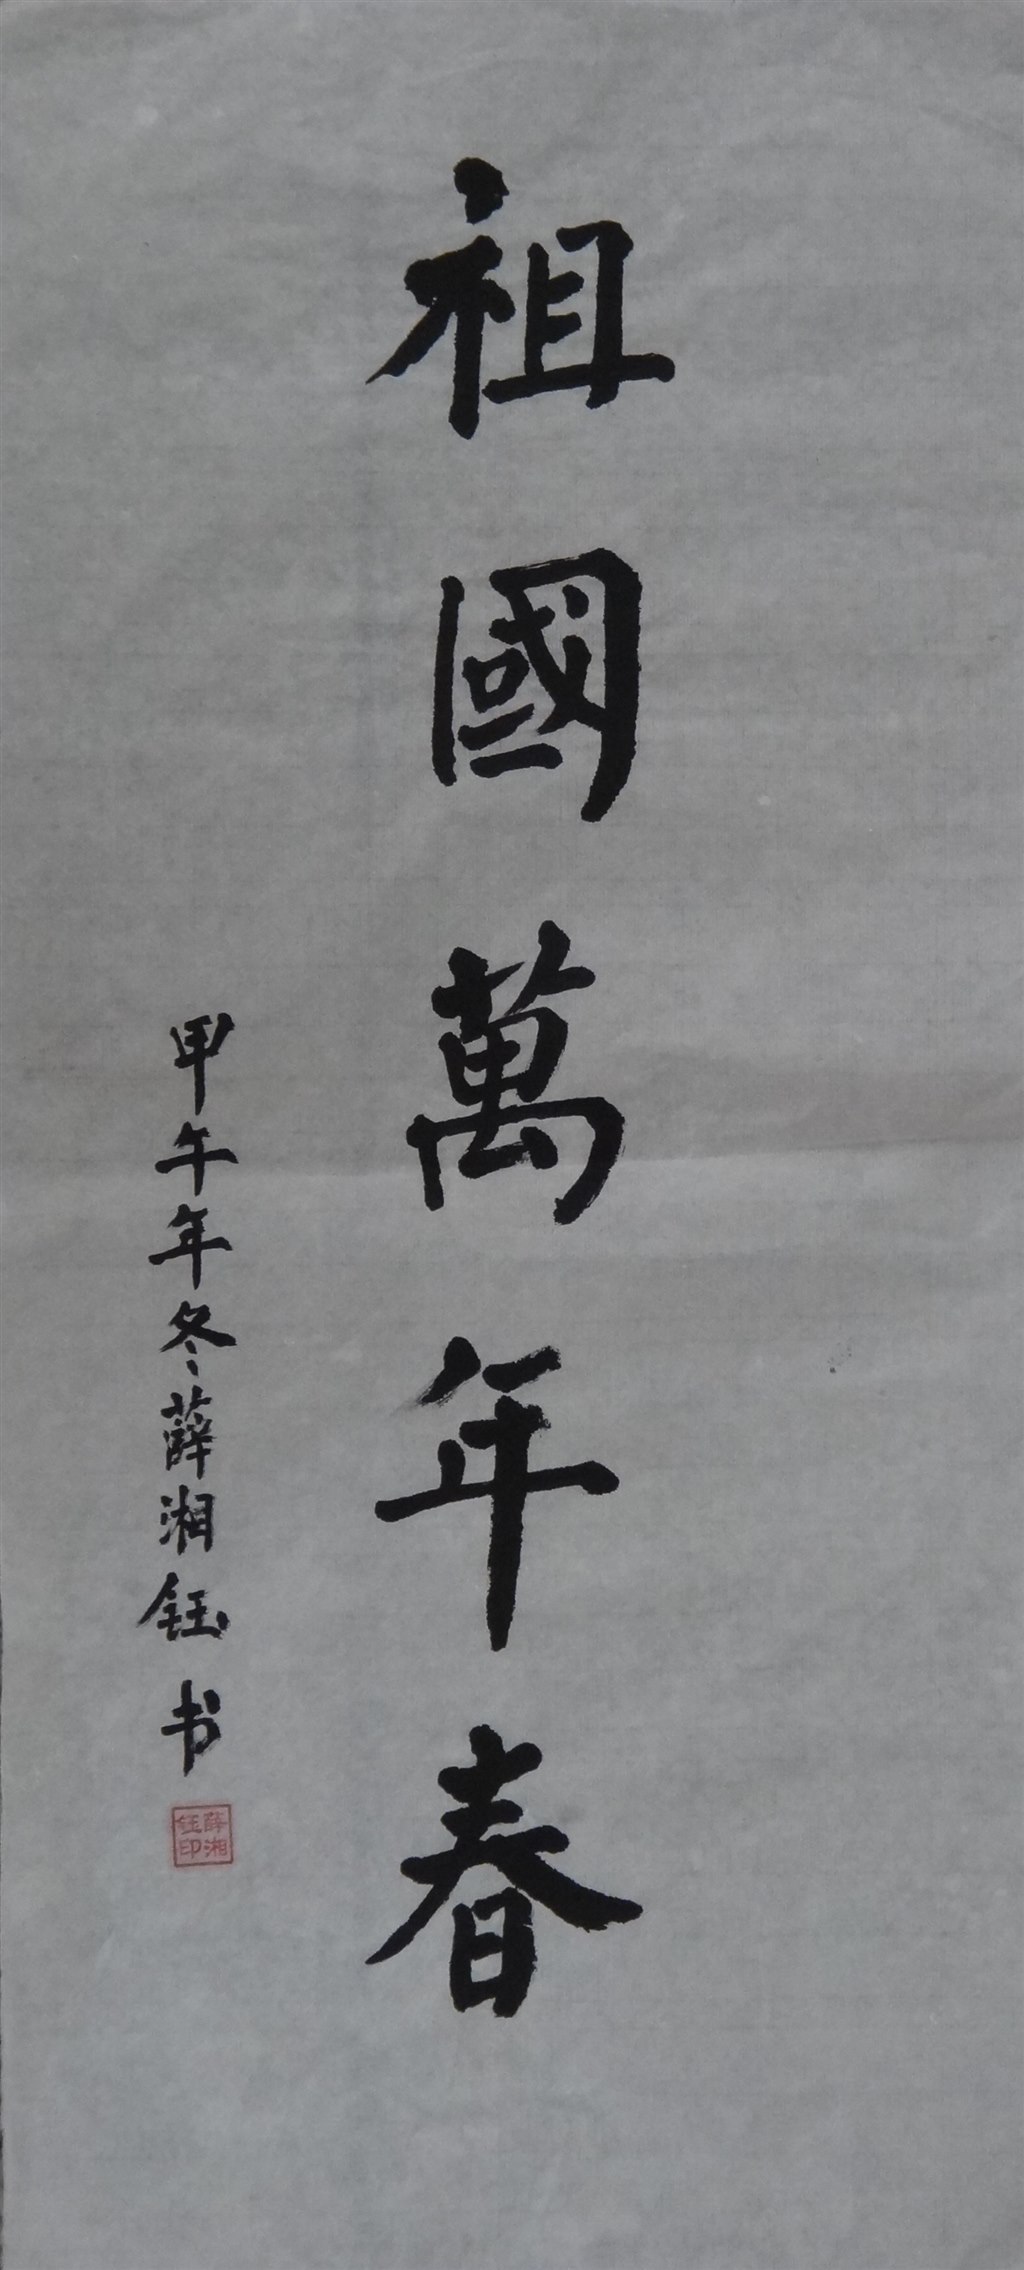 祖國萬年春
甲午年冬薛湘钰书
薛湘
钰印